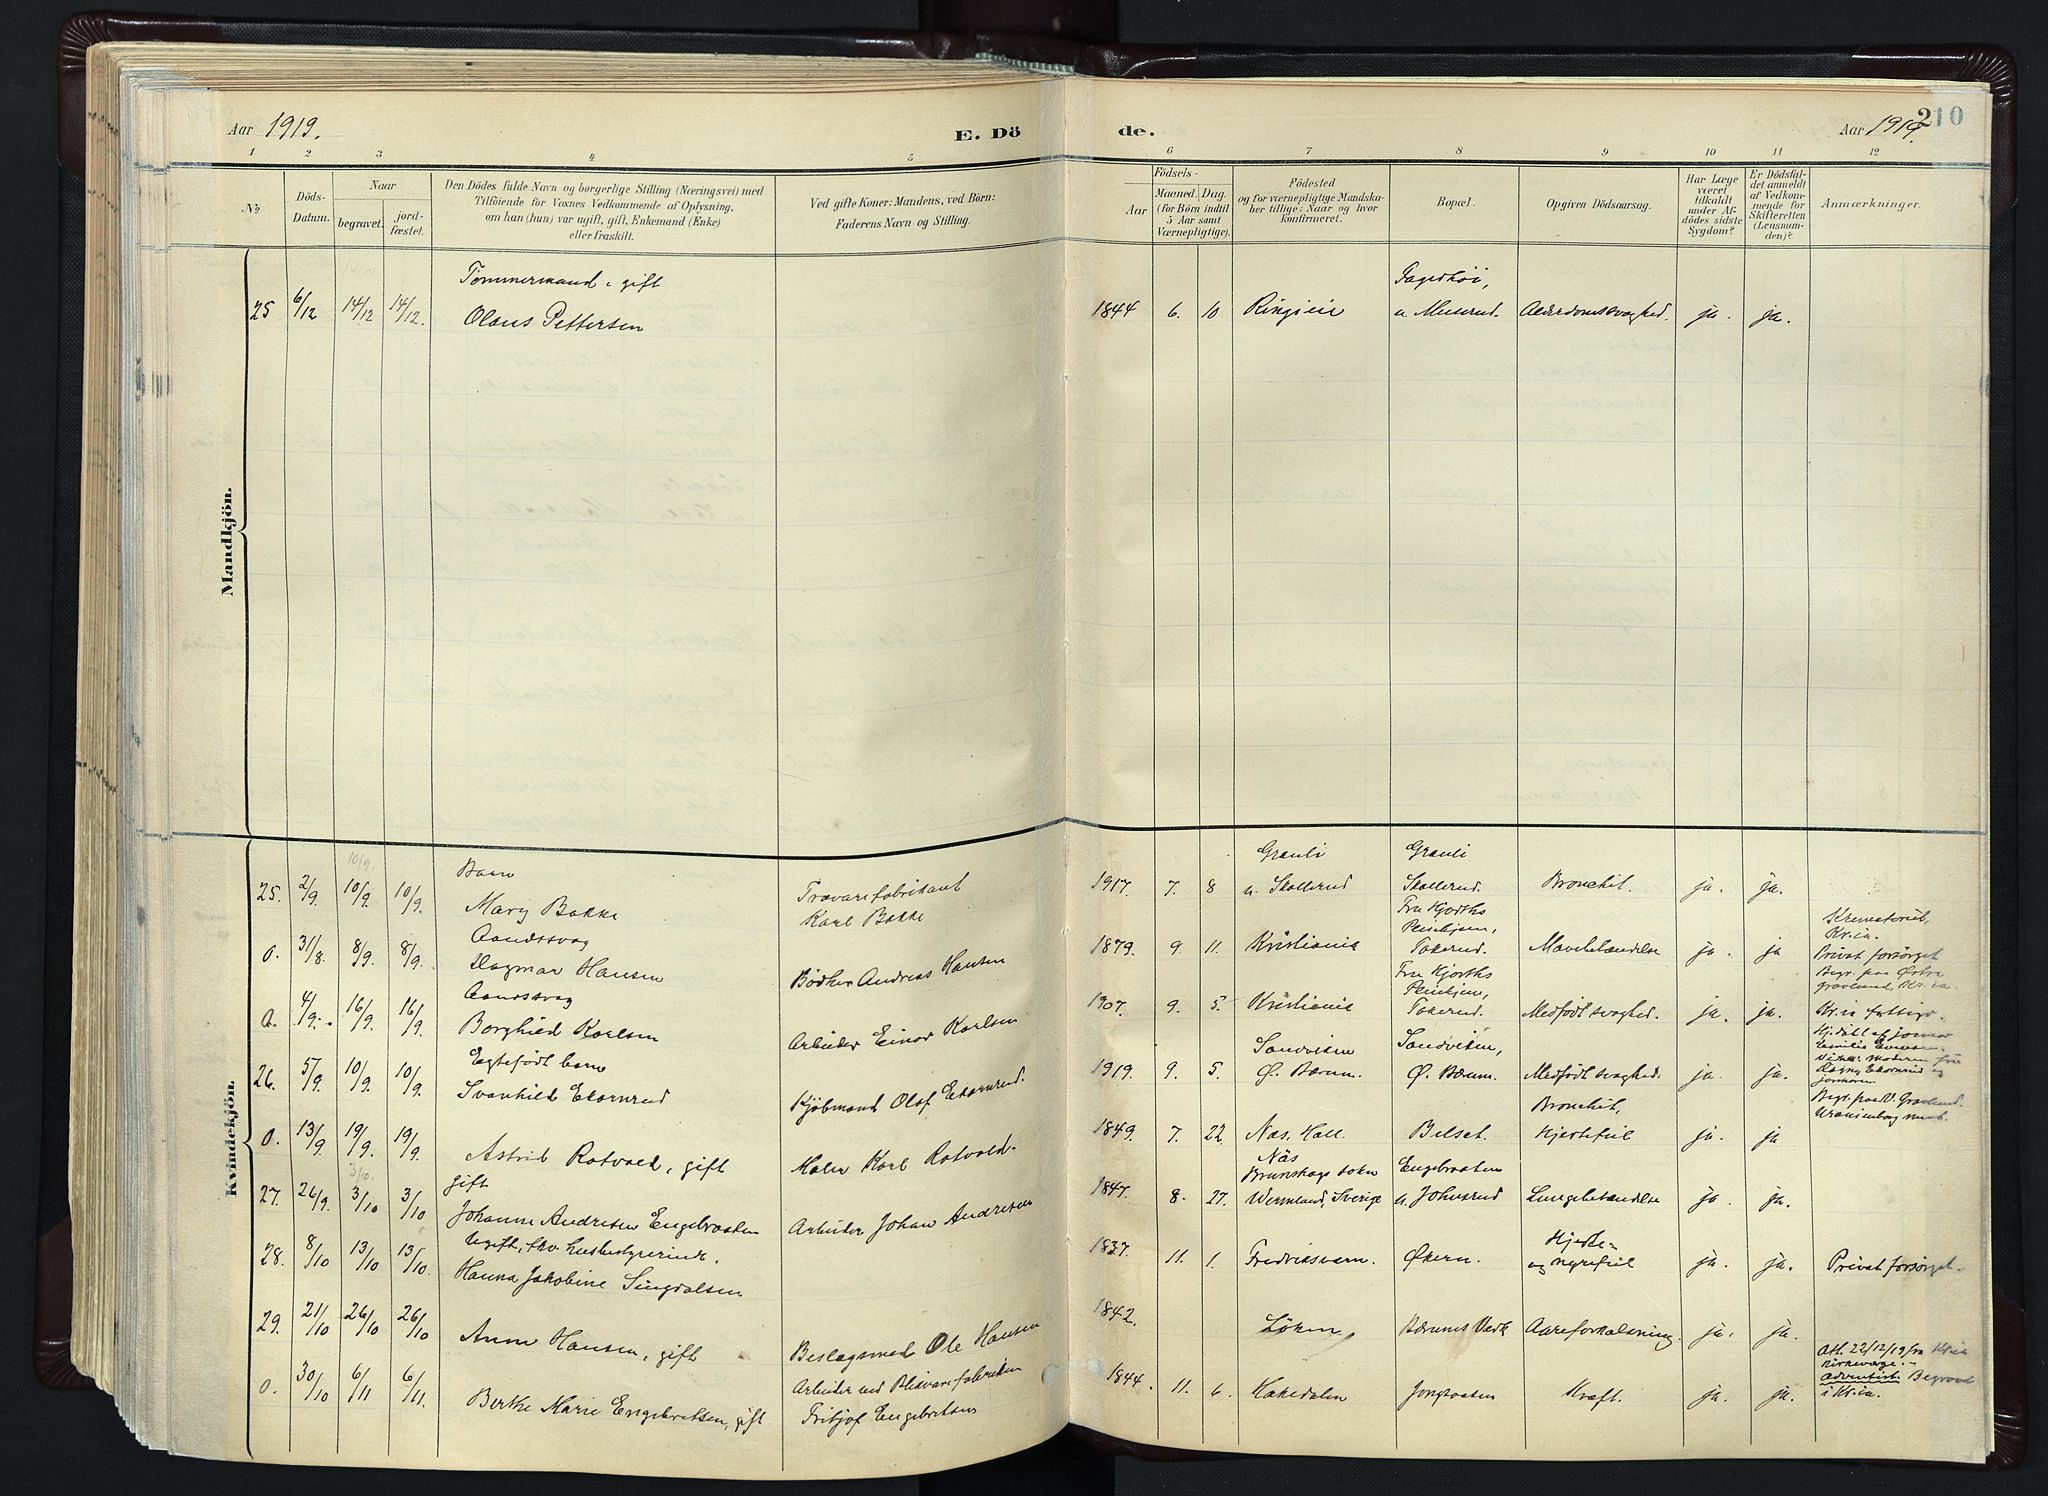 Aar 1919.
E. Dö
de.
Aar 1919.
210
1 2 3 4 5 6 7 8 9 10 11 12
No
Döds-
Datum.
Naar
begravet.
jord-
fæstet.
Den Dödes fulde Navn og borgerlige Stilling (Næringsvei) med
Tilföiende for Voxnes Vedkommende af Oplysning,
om han (hun) var ugift, gift, Enkemand (Enke)
eller fraskilt.
Ved gifte Koner: Mandens, ved Börn:
Faderens Navn og Stilling.
Födsels-
Aar
Maaned. Dag.
(for Börn indtil
5 Aar samt
Værnepligtige).
Födested
og for værnepligtige Mandska-
ber tillige: Naar og hvor
konfirmeret.
Bopæl.
Opgiven Dödsaarsag.
Har Læge
været
tilkaldt
under Af-
dödes sidste
Sygdom?
Er Dödsfal-
det anmeldt
af Vedkom-
mende for
Skifteretten
(Lensman-
den)?
Anmærkninger.
Mandkjön.
Tömmermand, gift
25 6/12 14/12 14/12. Olaus Pettersen
1844 6. 10 u. Aldersdomssvaghed. ja. ja.
Kvindekjön.
10/9.
Barn
25. 2/9. 10/9. 10/9. Mary Bakke
Trævarefabrikant
Karl Bakke
Grauli Grauli
1917. 7. 8 u. Skollerud Skollerud. Bronchit. ja. ja.
Aandssvag
0. 31/8. 8/9. 8/9. Dagmar Hansen
Bødker Andreas Hansen
Fru Hjorths
Pleiehjem,
1879. 9. 11. Kristiania Tokerud. Mavebetændelse ja. ja
Krematoriet,
Kr.ia.
Privat forsörget
Begr. paa Østre
gravlund, Kr.ia.
Aandssvag
0. 4/9. 16/9. 16/9. Borghild Karlsen
Arbeider Einar Karlsen
Fru Hjorths
Pleiehjem,
1907. 9. 5. Kristiania Tokerud. Medfödt svaghed. ja. ja.
Kr.ia fattigv.
Egtefödt barn
26. 5/9. 10/9. 10/9. Svanhild Ekornrud
Kjöbmand Olaf Ekornrud.
Sandviken Sandviken,
1919. 9. 5. Ö. Bærum. Ö. Bærum. Medfödt svaghed. ja. ja.
Hj.döbt af jomor
0. 13/9. 19/9. 19/9. Astrid Rotvold, gift
Maler Karl Rotvold.
Bronchit,
1849. 7. 22. Nas, Hall. Belset. Hjertefeil ja. ja
3/10.
gift
27. 26/9. 3/10 3/10 Johanne Andresen Engebraaten
Arbeider Johan Andresen
Brunskogs sokn Engebraaten
1847. 8. 27. Wermland, Sverige u. Johnsrud Lungebetændelse ja ja.
Ugift, fhv. husbestyrerinde.
28. 8/10 13/10 13/10. Hanna Jakobine Singdalsen
Hjerte-
1837. 11. 1. Fredriksværn. Økern. og nyrefeil ja. ja. Privat forsörget.
29. 21/10 26/10 26/10 Anne Hansen, gift
Beslagsmed Ole Hansen
1842. Löken, Bærums Verk Aareforkalkning. ja. ja.
0. 30/10 6/11 6/11. Berthe Marie Engebretsen, gift
Arbeider ved Blikvarefabrikken
Fritjof Engebretsen
1844. 11. 6. Hakedalen Jongsaasen Kræft. ja. ja.
Att. 22/12/19 fra Kr.ia
kirkeverge.
Adventist. Begravet
i Kr.ia.